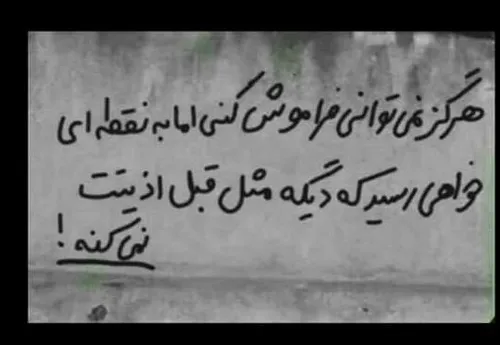 هرگز نمی توانی فراموش کنی اما به نقطه ای
خواهی رسید که دیگه مثل قبل اذیتت
نمی کنه !